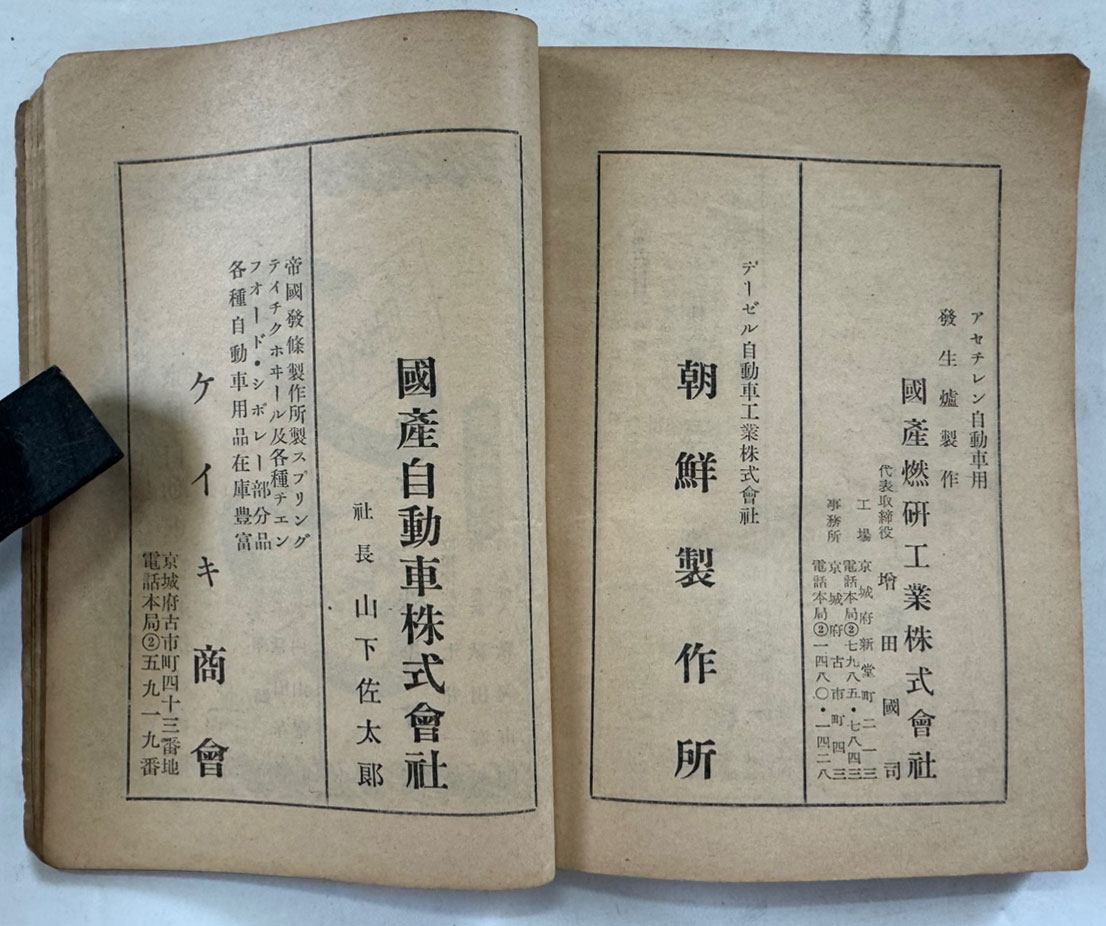 アセチレン自動車用
發生爐製作
國產燃研工業株式會社
代表取締役 增田國司
工場 京城府新堂町二一三
電話本局②七九八五・七八四三
事務所 京城府古市町四三
電話本局②一四八〇・一四二八
デーゼル自動車工業株式會社
朝鮮製作所
國產自動車株式會社
社長 山下佐太郞
帝國發條製作所製スプリング
テイチクホヰール及各種チエン
フオード・シボレー部分品
各種自動車用品在庫豐富
ケイキ商會
京城府古市町四十三番地
電話本局②五九一九番